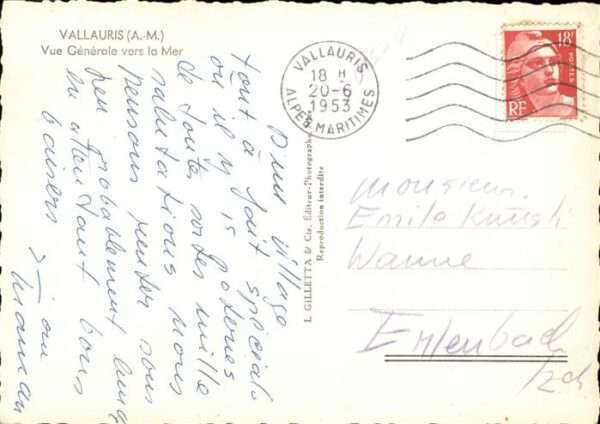 VALLAURIS (A.-M.)
Vue Générale vers la Mer
VALLAURIS
18 H
20-6
1953
ALPES MARITIMES
18F
POSTES
RF
D'un village
tout à fait spécial
où il y a poteries
de toutes sortes mille
salutations nous
pensons rentrer sous
peu probablement lundi
en attendant bons
baisers
Maman
L. GILLETTA & Cie, Éditeur-Photographe
Reproduction interdite
Monsieur
Emile Künzli
Wanne
Erlenbach
Zch